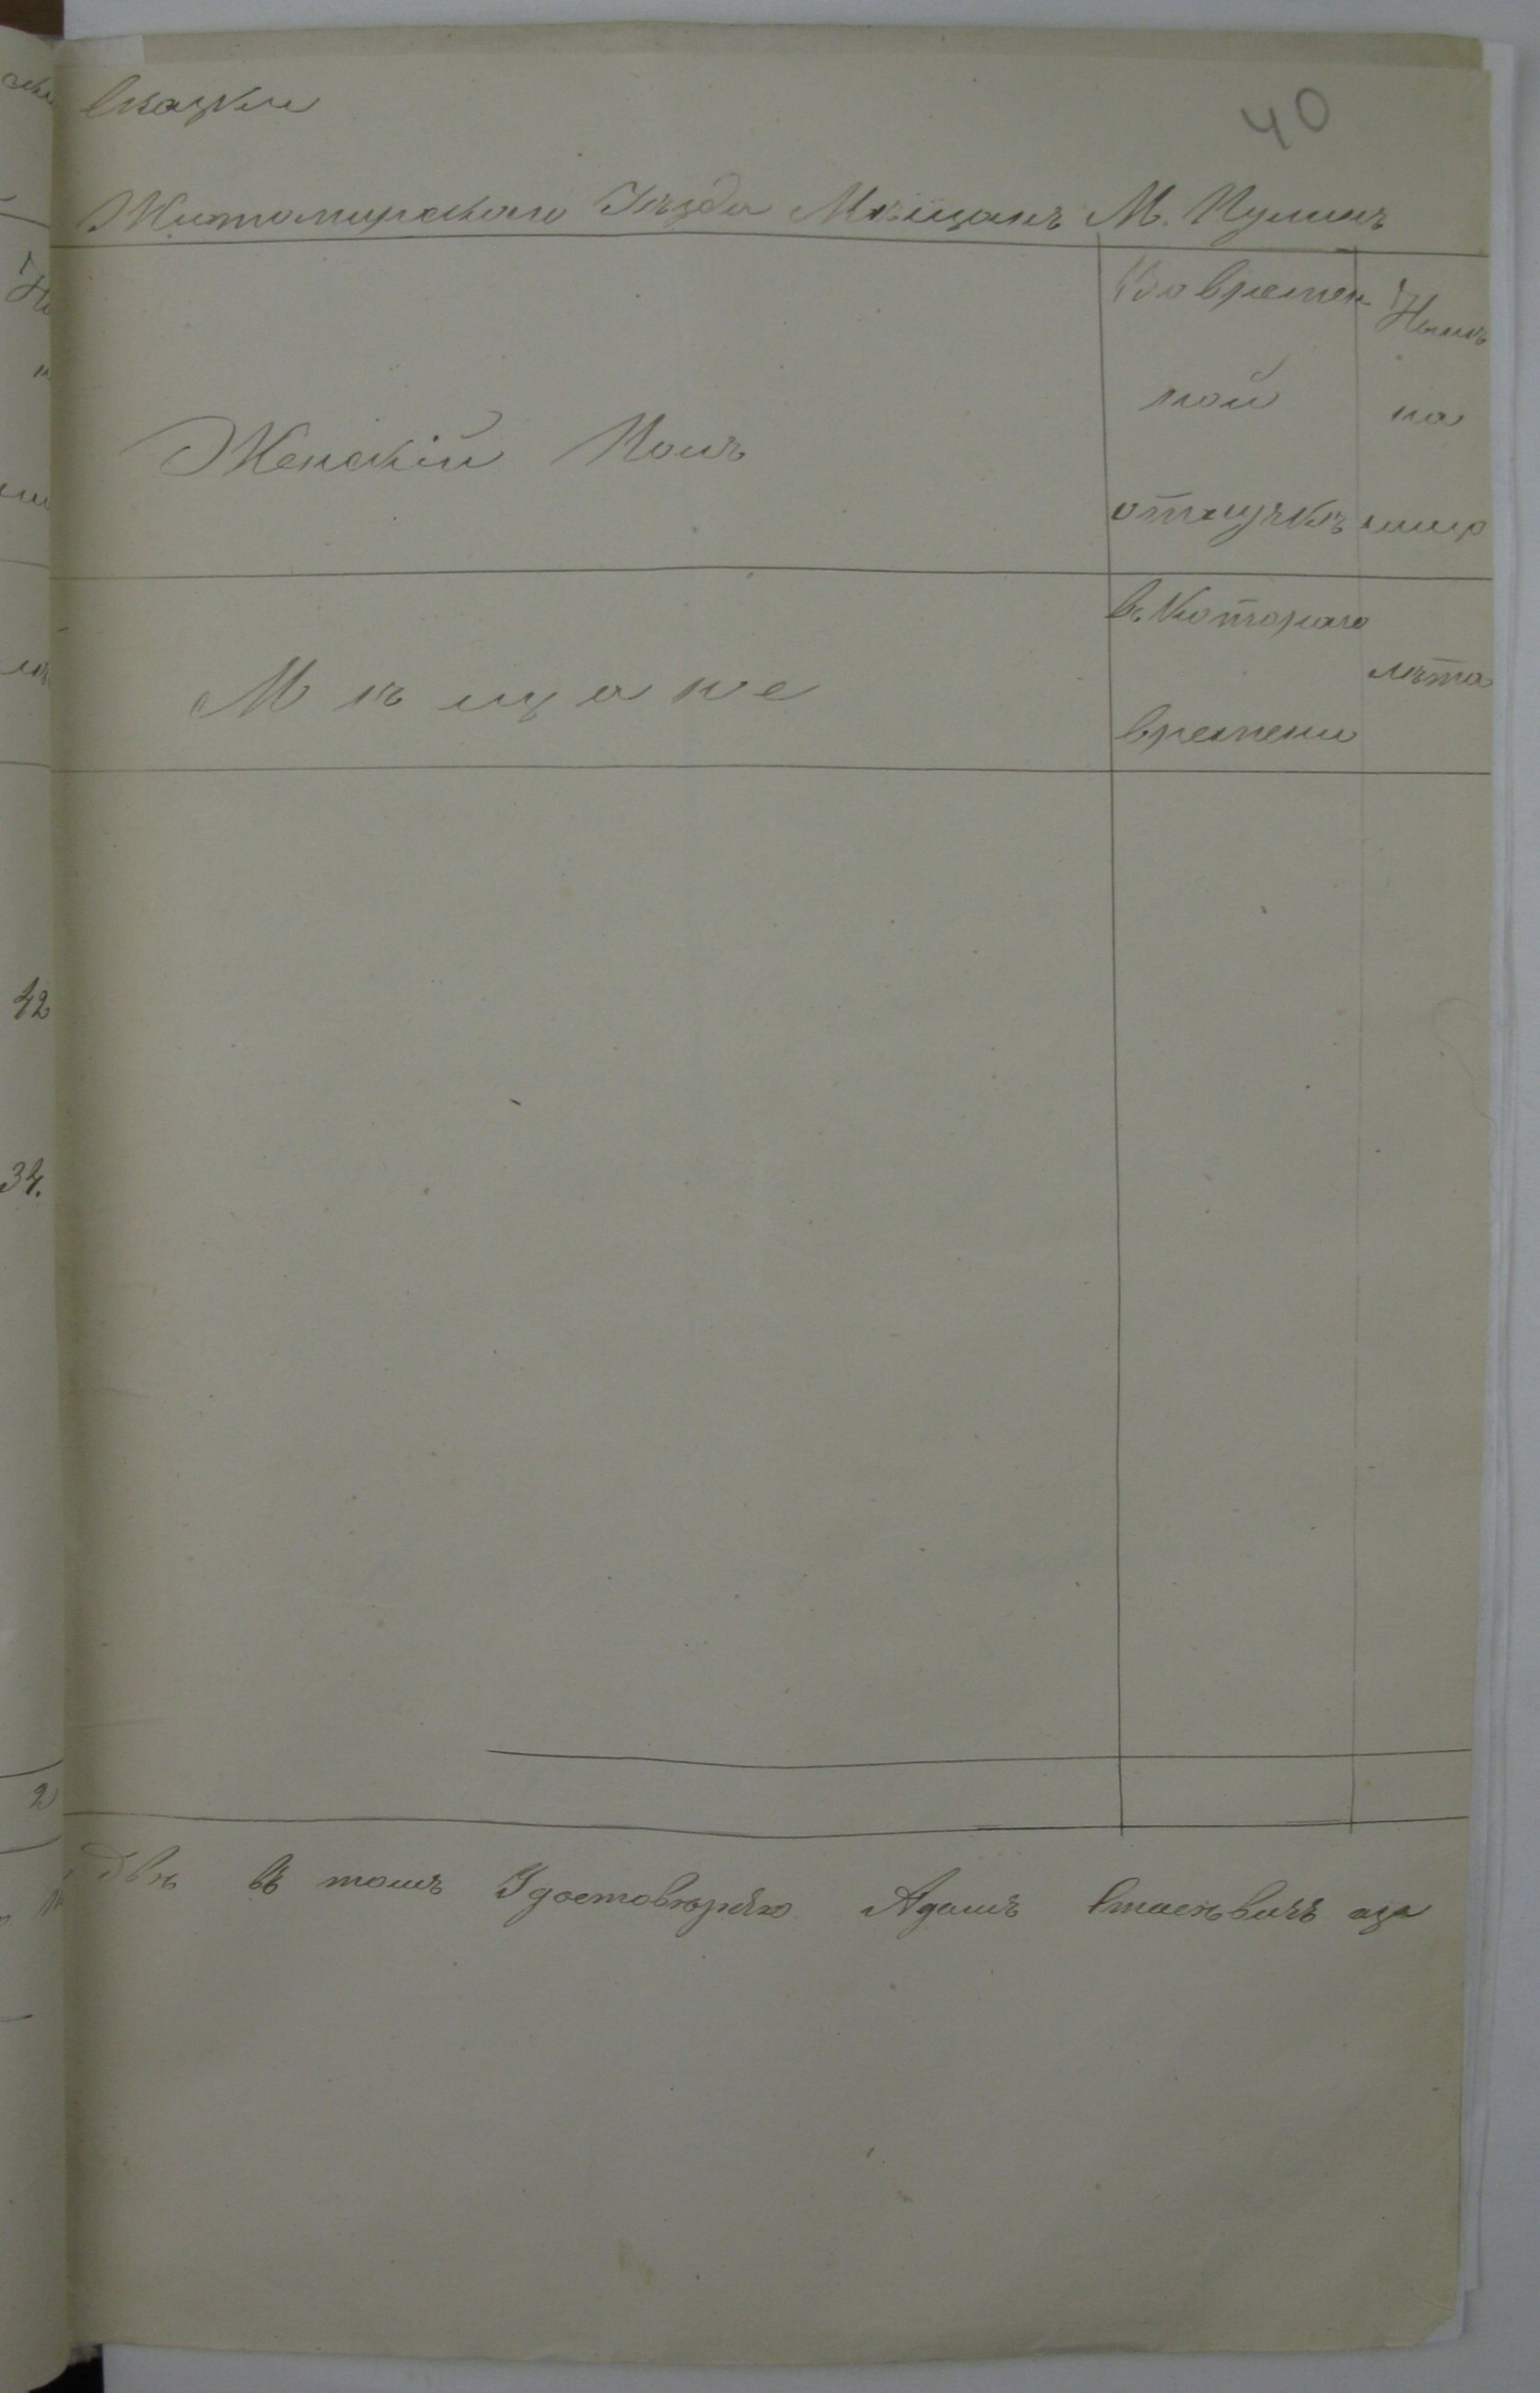 сказки
40
Житомирскаго Уѣзда Мѣщанъ М. Пулинъ
Женскій Полъ
Во времен
ной
отлучкѣ
Нынѣ
на
лицо
Мѣщане
съ Котораго
времени
лѣта
42
34.
2
двѣ въ томъ Удостовѣряю Адамъ